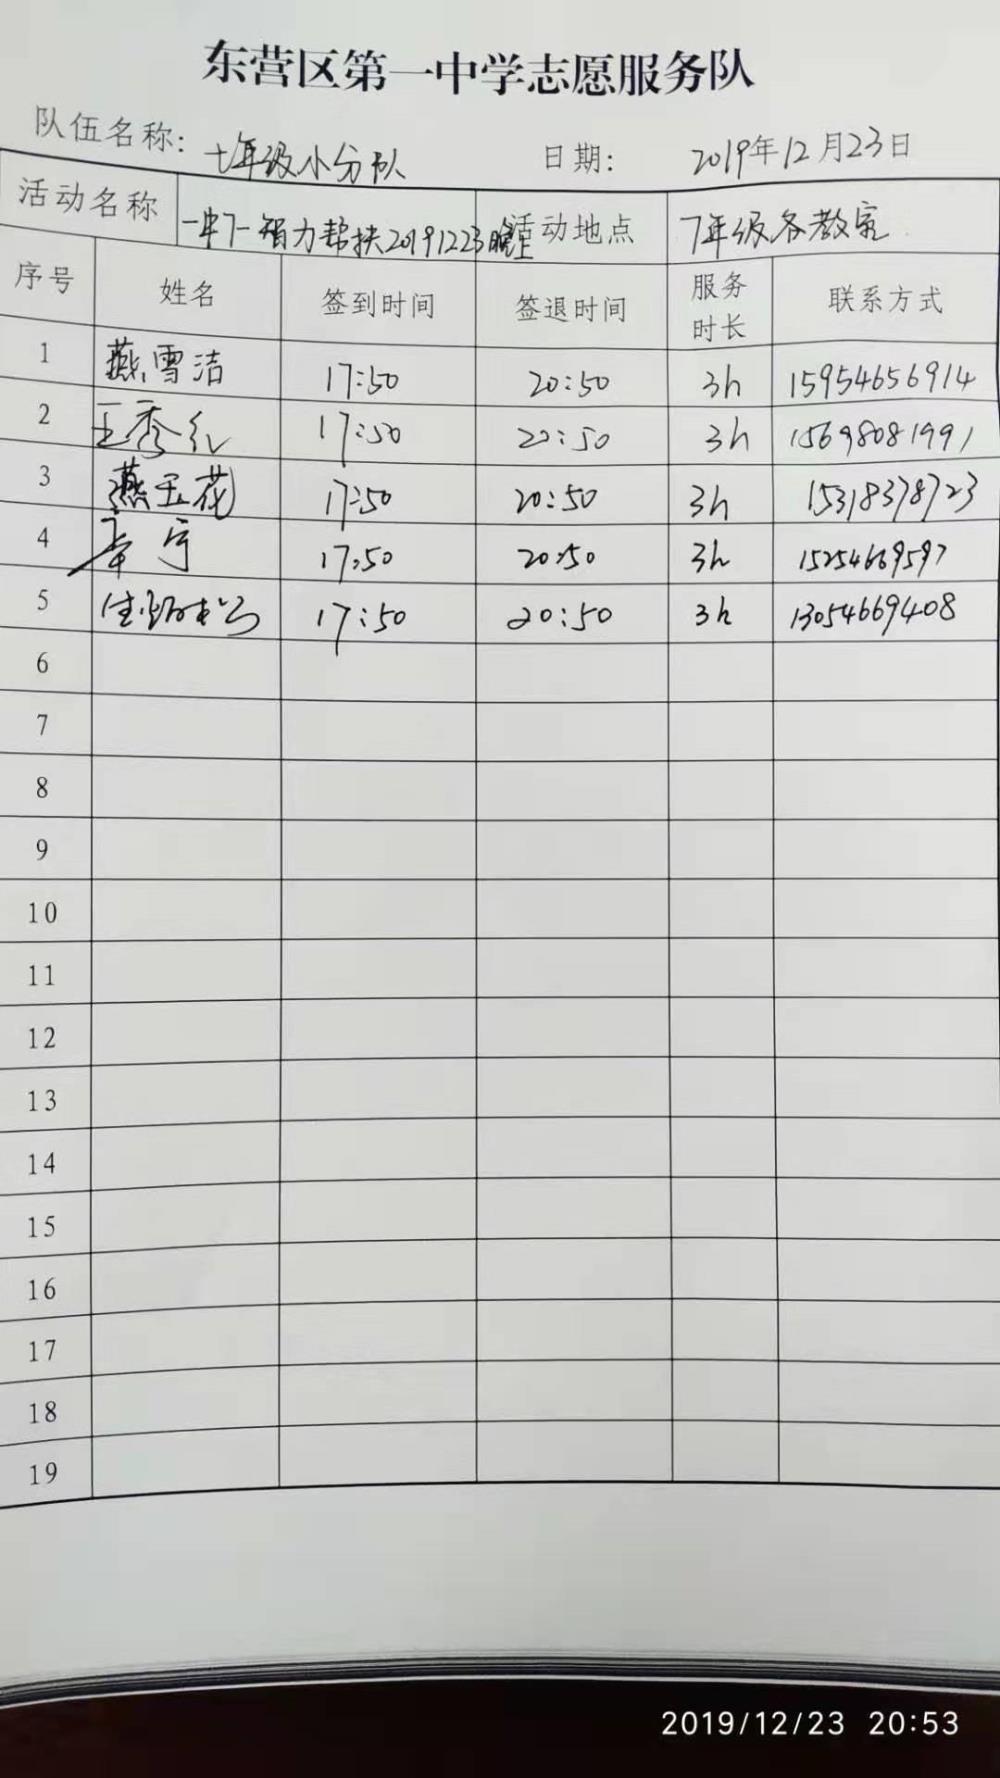 东营区第一中学志愿服务队
队伍名称: 七年级小分队 日期: 2019年12月23日
活动名称 一中7一智力帮扶20191223晚 活动地点 7年级各教室
序号 姓名 签到时间 签退时间 服务时长 联系方式
1 燕雪洁 17:50 20:50 3h 15954656914
2 王秀红 17:50 20:50 3h 15698081991
3 燕玉花 17:50 20:50 3h 15318378723
4 17:50 20:50 3h 15254669597
5 17:50 20:50 3h 13054669408
6
7
8
9
10
11
12
13
14
15
16
17
18
19
2019/12/23 20:53